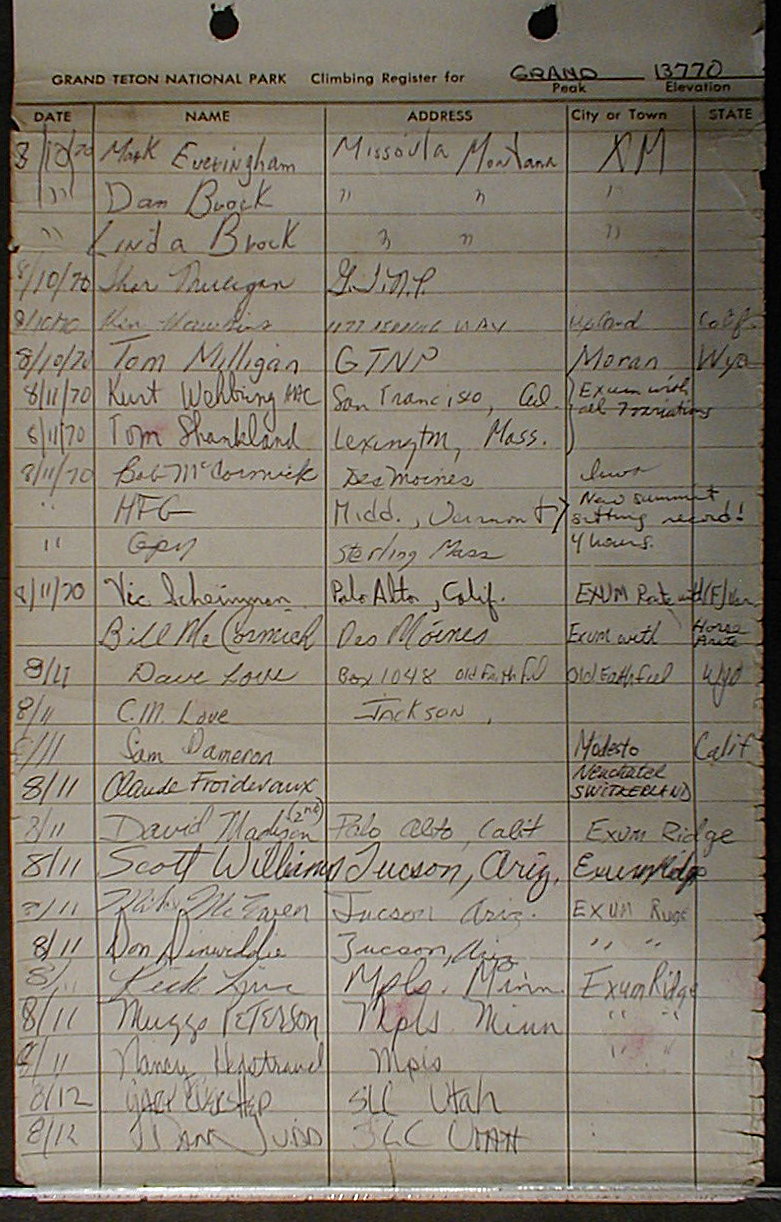 GRAND TETON NATIONAL PARK Climbing Register for GRAND 13770
Peak Elevation
DATE NAME ADDRESS City or Town STATE
8/10/70 Mark Everingham Missoula Montana XM
" Dan Brock " " "
" Linda Brock " " "
8/10/70 G.T.N.P.
8/10/70 Ken WAY Upland Calif.
8/10/70 Tom Milligan GTNP Moran Wyo
8/11/70 Kurt Wehbring AAC San Francisco, Cal. Exum with
all variations
8/11/70 Tom Shankland Lexington, Mass.
8/11/70 Bob McCormick Des Moines Iowa
" HFG Midd., Vermont New summit
sitting record!
" Sterling Mass 4 hours.
8/11/70 Vic Scheinman Palo Alto, Calif. EXUM Route with (F) Var.
Bill McCormick Des Moines Exum with Horse
8/11 Dave Love Box 1048 Old Faithful Old Faithful Wyo
8/11 C.M. Love Jackson,
8/11 Sam Dameron Modesto Calif
8/11 Claude Froidevaux Neuchatel
SWITZERLAND
8/11 David Madison (2nd) Palo Alto, Calif Exum Ridge
8/11 Scott Williams Tucson, Ariz. Exum Ridge
8/11 Mike McEwen Tucson Ariz. EXUM Ridge
8/11 Don Dinwiddie Tucson, Ariz " "
8/11 Mpls. Minn. Exum Ridge
8/11 Muggs PETERSON Mpls Minn " "
8/11 Nancy Mpls " "
8/12 GARY SLC Utah
8/12 JUDD SLC UTAH